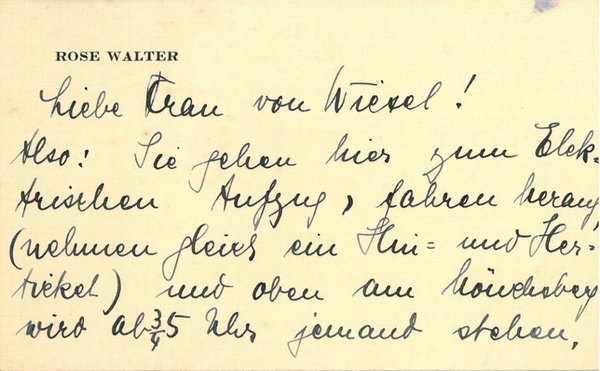 ROSE WALTER
Liebe Frau von Wiesel!
Also: Sie gehen hier zum Elek-
trischen Aufzug, fahren herauf,
(nehmen gleich ein Hin= und Her-
ticket) und oben am Mönchsberg
wird ab 3/4 5 Uhr jemand stehen.